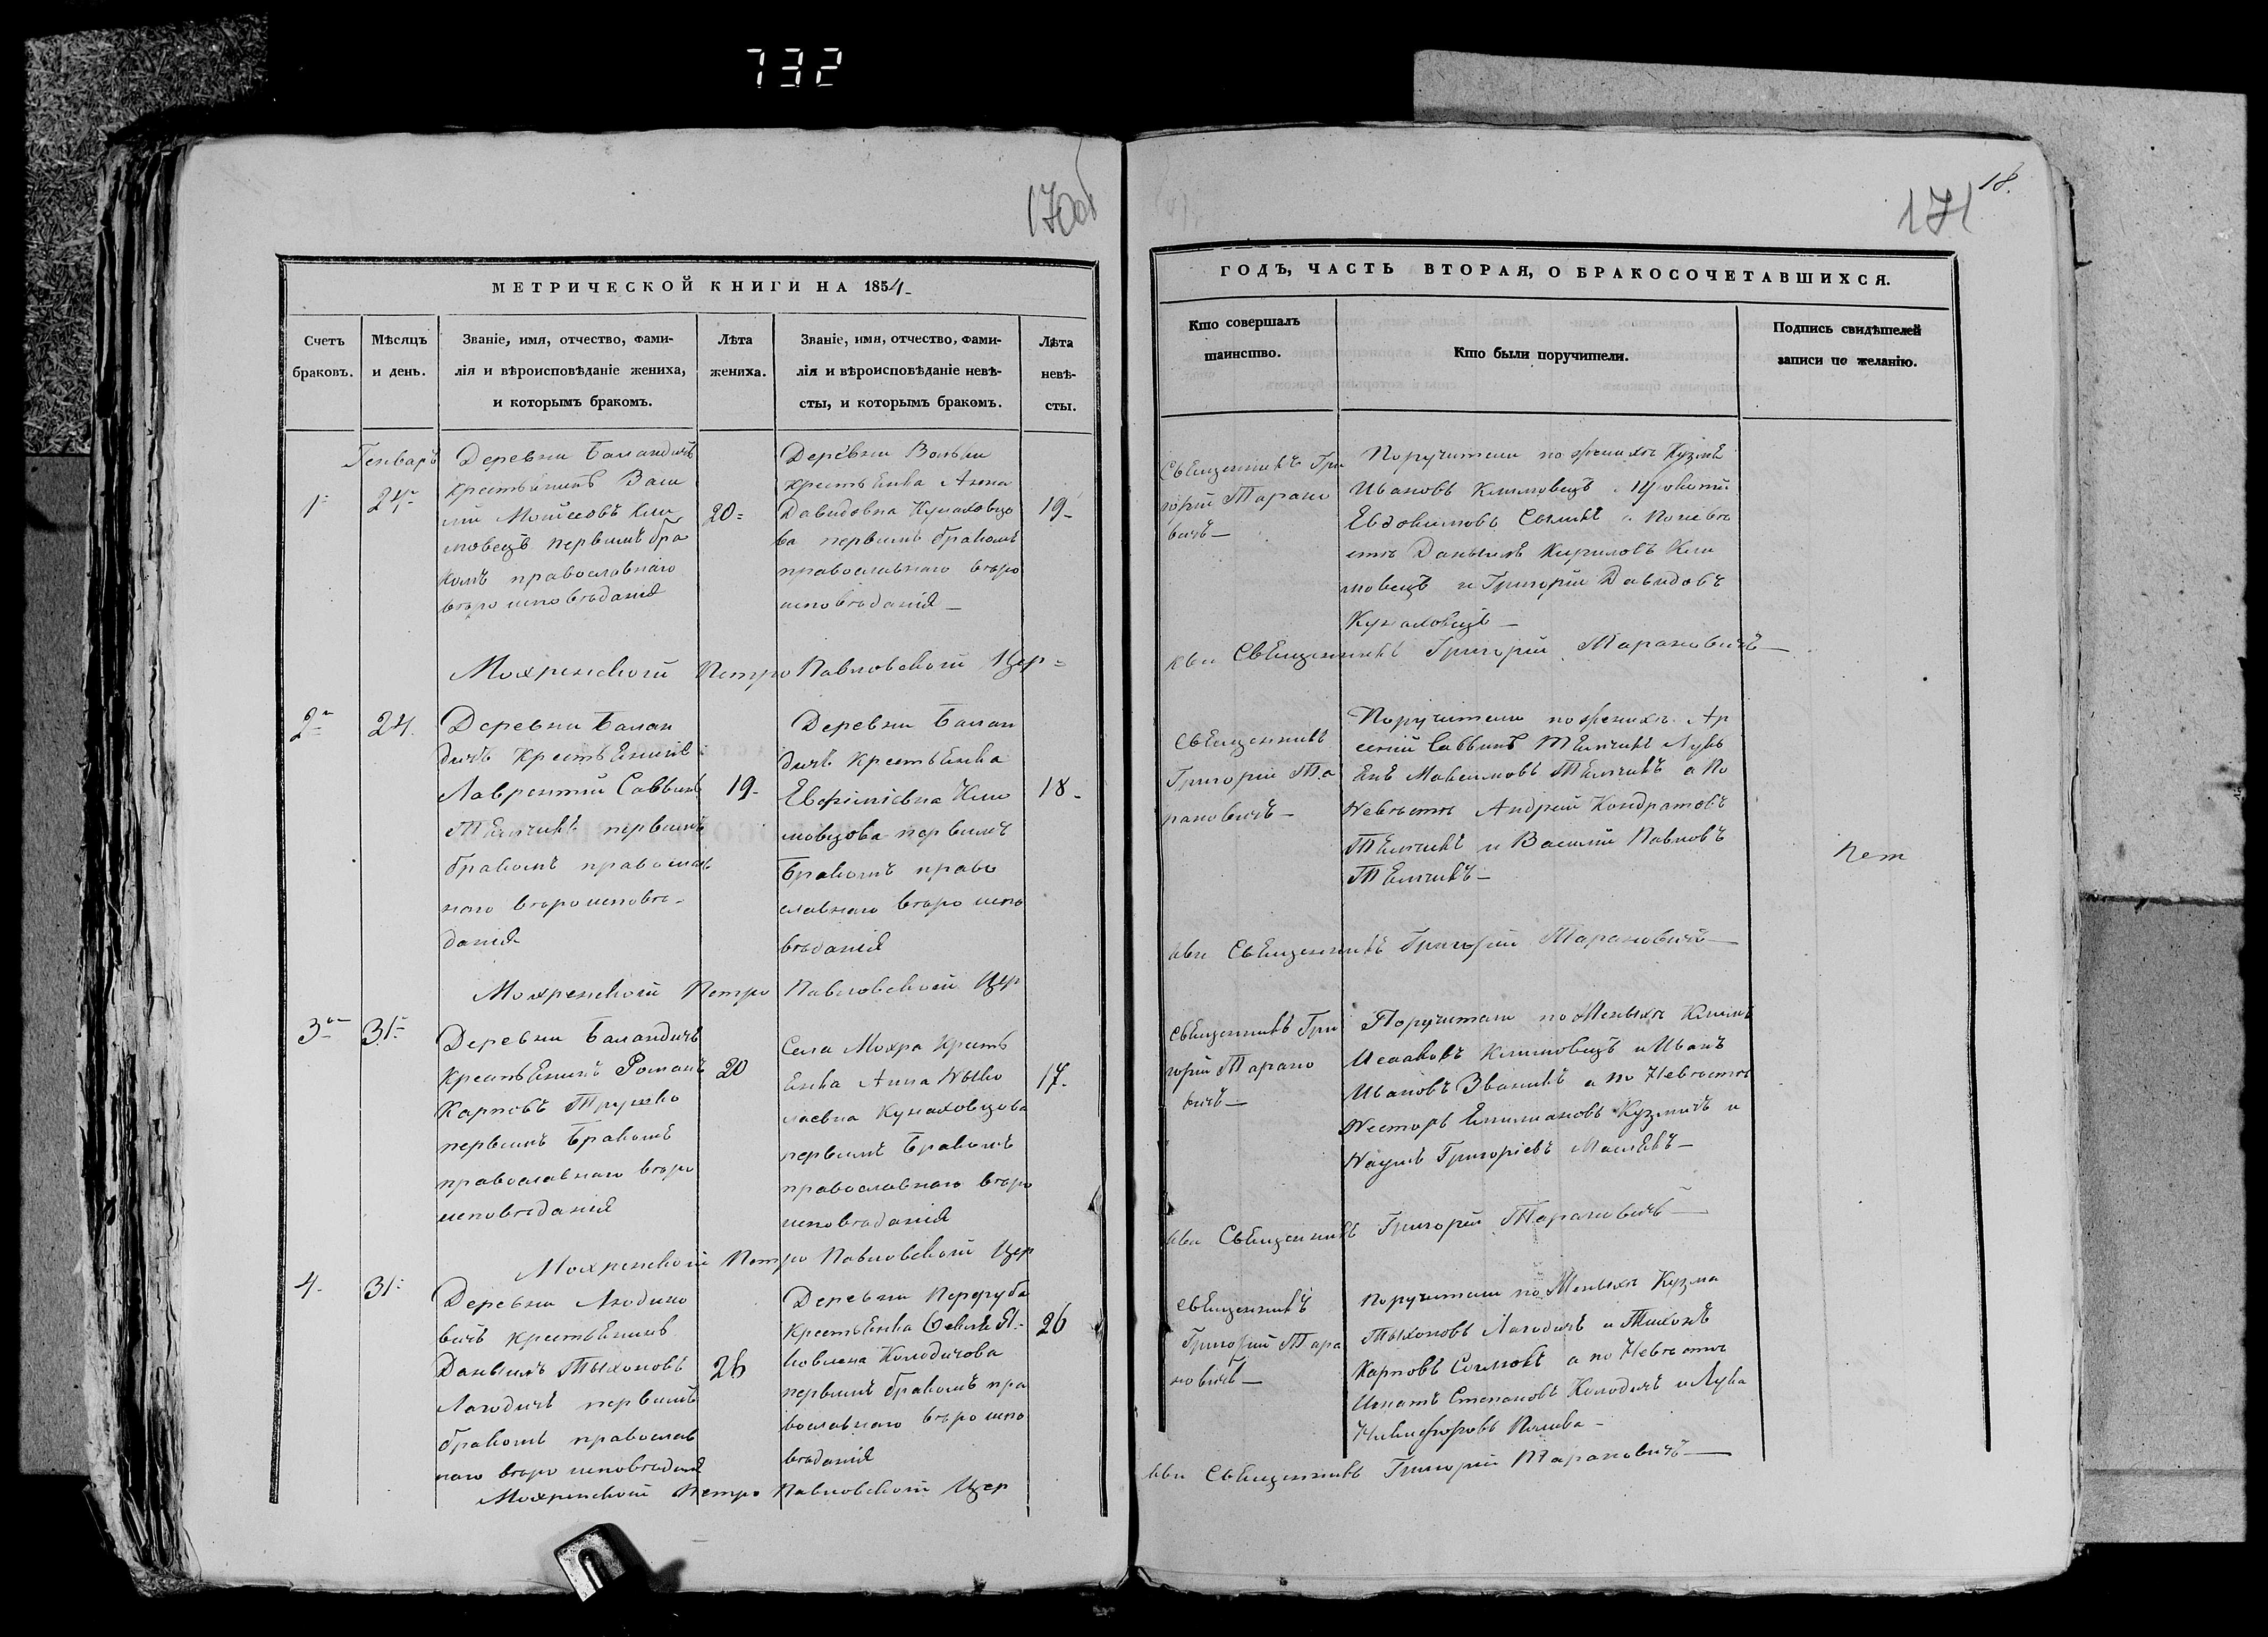 732
170об
МЕТРИЧЕСКОЙ КНИГИ НА 1854
Счетъ браковъ.
Мѣсяцъ и день.
Званіе, имя, отчество, фами-
лія и вѣроисповѣданіе жениха,
и которымъ бракомъ.
Лѣта жениха.
Званіе, имя, отчество, фами-
лія и вѣроисповѣданіе невѣ-
сты, и которымъ бракомъ.
Лѣта невѣ-
сты.
Генварь
1
24
Деревни Баландичъ
крестьянинъ Васи
лій Моисеовъ Кли
мовецъ первымъ бра
комъ православнаго
вѣро исповѣданія
20
Деревни Вольки
крестьянка Анна
Давидовна Кунаховцо
ва первымъ бракомъ
православнаго вѣро
исповѣданія
19
Мохренской Петро Павловской Цер=
2
24.
Деревни Балан
дичъ Крестьянинъ
Лаврентій Саввинъ
первымъ
бракомъ православ
наго вѣроисповѣ-
данія
19
Деревни Балан
дичъ крестьянка
Евфиміевна Кли
мовцова первымъ
бракомъ право
славнаго вѣро испо
вѣданія
18
Мохренской Петро Павловской Цер
3
31
Деревни Баландичъ
Крестьянинъ Романъ
Карповъ
первымъ бракомъ
православнаго вѣро
исповѣданія
20
Села Мохра Кресть
янка Анна Нико
лаевна Кунаховцова
первымъ бракомъ
православнаго вѣро
исповѣданія
17
Мохренской Петро Павловской Цер
4
31
Деревни Лядино
вичъ крестьянинъ
Даныилъ Тыхоновъ
Лагодичъ первымъ
бракомъ православ
наго вѣро исповѣданія
26
Деревни Переруба
Крестьянка Я-
ковлена Колодичова
первымъ бракомъ пра
вославнаго вѣро испо
вѣданія
26
Мохренской Петро Павловской Цер
18.
171
ГОДЪ, ЧАСТЬ ВТОРАЯ, О БРАКОСОЧЕТАВШИХСЯ.
Кто совершалъ
таинство.
Кто были поручители.
Подпись свидѣтелей
записи по желанію.
Священникъ Гри
горій Тарано
вичъ
Поручители по женихѣ Кузма
Ивановъ Климовецъ
Евдокимовъ а по невѣ
стѣ Даныилъ Кириловъ Кли
мовецъ и Григорій Давидовъ
Кунаховецъ
кви Священникъ Григорій Тарановичъ
Священникъ
Григорій Та
рановичъ
Поручители по женихѣ Ар
сеній Саввинъ
Максимовъ а по
Невѣстѣ Андрей Кондратовъ
и Василій Павловъ
Нет
кви Священникъ Григорій Тарановичъ
Священникъ Гри
горій Тарано
вичъ
Поручители по Женыхѣ
Исааковъ Климовецъ и Иванъ
Ивановъ Званикъ а по Невѣстѣ
Несторъ Емильановъ Кузмичъ и
Наумъ Григоріевъ
кви Священникъ Григорій Тарановичъ
Священникъ
Григорій Тара
новичъ
Поручители по Женыхѣ Кузма
Тыхоновъ Лагодичъ и Тихонъ
Карповъ а по Невѣстѣ
Игнатъ Степановъ Колодичъ и Лука
Никифоровъ
кви Священникъ Григорій Тарановичъ